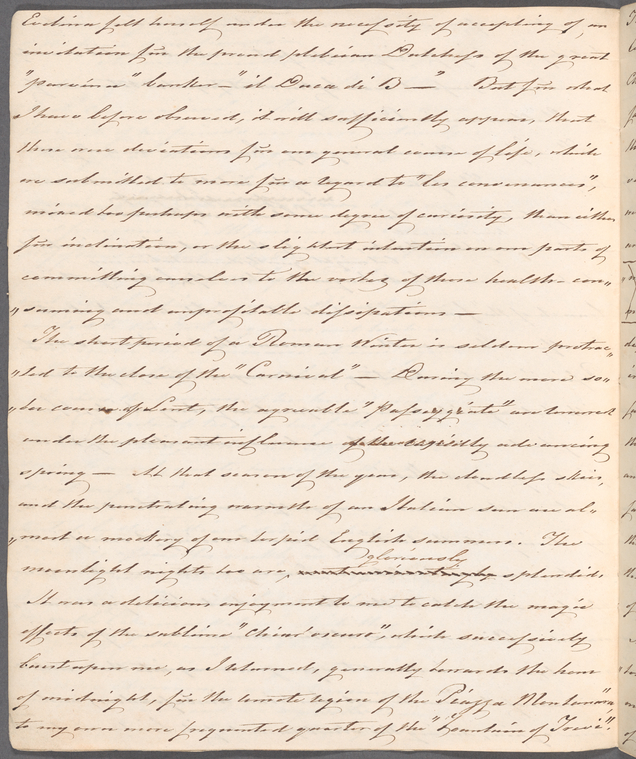 Evelina felt herself under the necessity of accepting of, an
invitation from the proud plebeian Dutchess of the great
"parvenu" banker — "il Duca di B —" But from what
I have before observed, it will sufficiently appear, that
these were deviations from our general course of life, which
we submitted to more from a regard to "les convenances",
mixed too perhaps with some degree of curiosity, than either
from inclination, or the slightest intention on our parts of
committing ourselves to the vortex of those health-con„
„suming and unprofitable dissipations —
The short period of a Roman Winter is seldom protrac„
„ted to the close of the "Carnival" — During the more so„
„ber course of Lent, the agreable "Passeggiate" are
under the pleasant influence of the rapidly advancing
spring — At that season of the year, the cloudless skies,
and the penetrating warmth of an Italian sun are al„
„most a mockery of our tepid English summers. The
gloriously
moonlight nights too are, splendid.
It was a delicious enjoyment to me to catch the magic
effects of the sublime "chiar'oscuro", which successively
burst upon me, as I returned, generally towards the hour
of midnight, from the remote region of the Piazza Montanara,
to my own more frequented quarter of the "Fountain of Trevi",